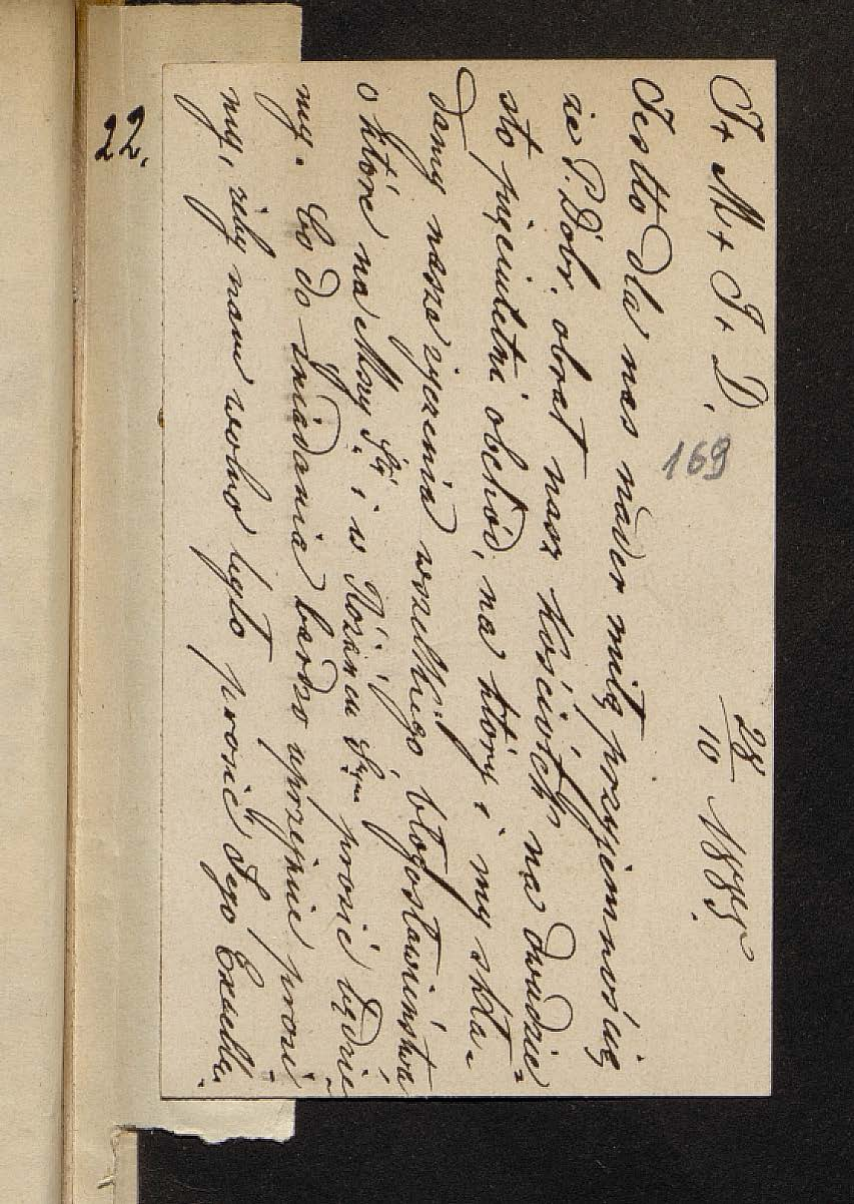 J + M + J + D.
28/10 1885.
169
Jestto dla nas nader miłą przyjemnością
że P. Dobr. obrał nasz kościołek na dwudzie=
sto pięcioletni obchód, na który i my skła-
damy nasze życzenia wszelkiego błogosławieństwa
o które na Mszy Stéj i w Różańcu Sgym prosić będzie-
my. Co do śniadania bardzo uprzejmie prosi-
my, żeby nam wolno było prosić Jego Excelle.
22.